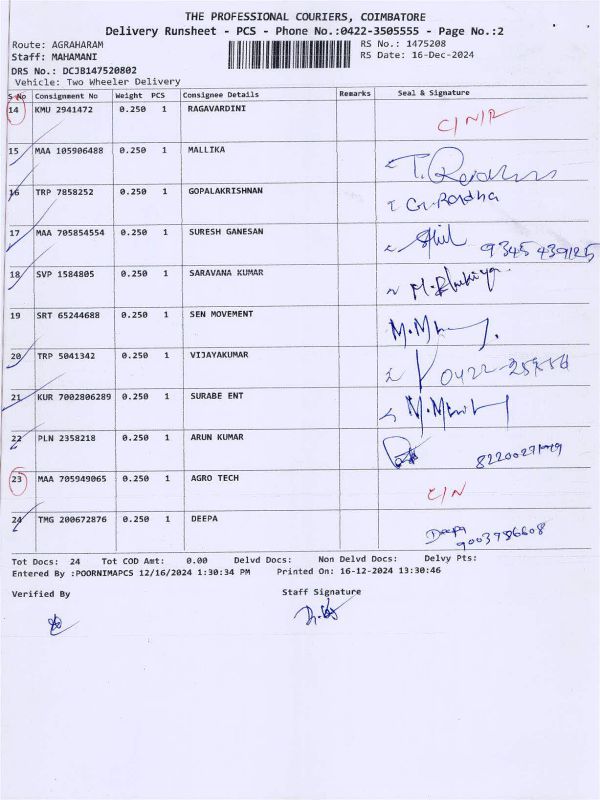 THE PROFESSIONAL COURIERS, COIMBATORE
Delivery Runsheet - PCS - Phone No.:0422-3505555 - Page No.:2
Route: AGRAHARAM RS No.: 1475208
Staff: MAHAMANI RS Date: 16-Dec-2024
DRS No.: DCJB147520802
Vehicle: Two Wheeler Delivery
S-No Consignment No Weight PCS Consignee Details Remarks Seal & Signature
14 KMU 2941472 0.250 1 RAGAVARDINI
15 MAA 105906488 0.250 1 MALLIKA
16 TRP 7858252 0.250 1 GOPALAKRISHNAN
17 MAA 705854554 0.250 1 SURESH GANESAN
18 SVP 1584805 0.250 1 SARAVANA KUMAR
19 SRT 65244688 0.250 1 SEN MOVEMENT
20 TRP 5041342 0.250 1 VIJAYAKUMAR
21 KUR 7002806289 0.250 1 SURABE ENT
22 PLN 2358218 0.250 1 ARUN KUMAR
23 MAA 705949065 0.250 1 AGRO TECH C/N
24 TMG 200672876 0.250 1 DEEPA Deepa
Tot Docs: 24 Tot COD Amt: 0.00 Delvd Docs: Non Delvd Docs: Delvy Pts:
Entered By :POORNIMAPCS 12/16/2024 1:30:34 PM Printed On: 16-12-2024 13:30:46
Verified By Staff Signature